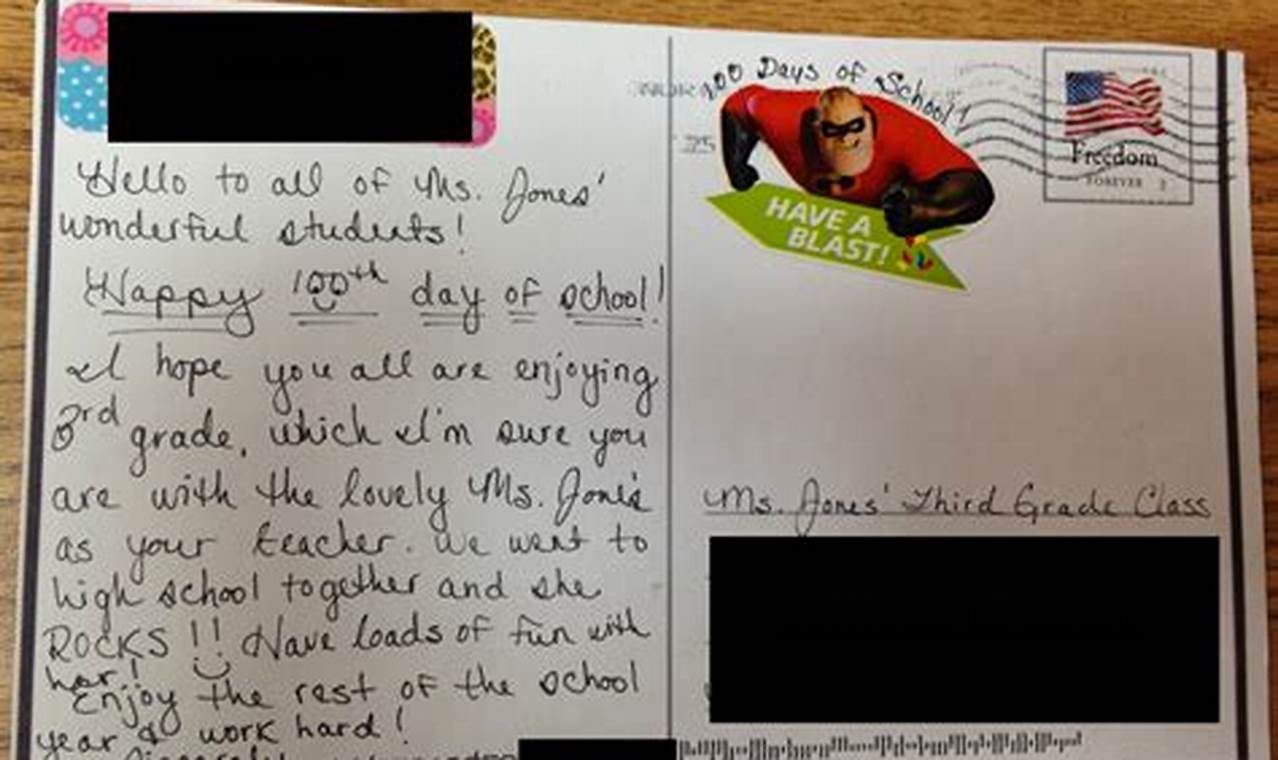 Hello to all of Ms. Jones'
wonderful students!
Happy 100th day of school!
I hope you all are enjoying
3rd grade, which I'm sure you
are with the lovely Ms. Jones
as your teacher. We went to
high school together and she
ROCKS!! Have loads of fun with
her!
Enjoy the rest of the school
year & work hard!
Sincerely,
100 Days of School!
HAVE A
BLAST!
25
Freedom
FOREVER
Ms. Jones' Third Grade Class